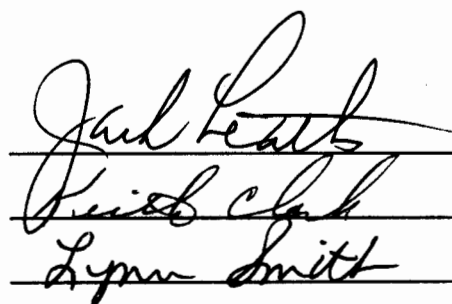 Jack
Keith Clark
Lynn Smith